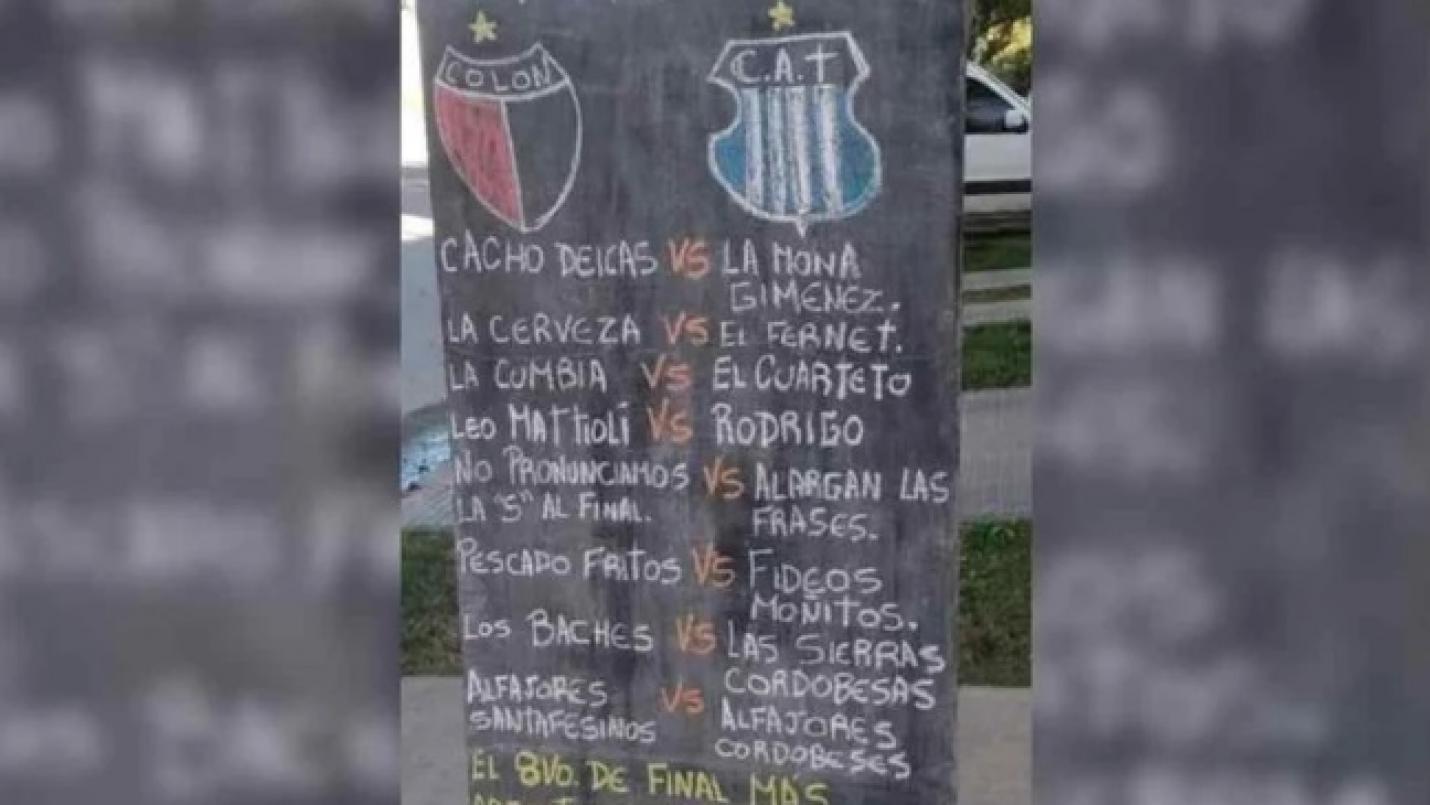 COLON
C.A.T
CACHO DEICAS VS LA MONA
GIMENEZ.
LA CERVEZA VS EL FERNET.
LA CUMBIA VS EL CUARTETO
LEO MATTIOLI VS RODRIGO
NO PRONUNCIAMOS VS ALARGAN LAS
LA "S" AL FINAL. FRASES.
PESCADO FRITOS VS FIDEOS
MOÑITOS.
LOS BACHES VS LAS SIERRAS
CORDOBESAS
ALFAJORES VS ALFAJORES
SANTAFESINOS CORDOBESES
EL 8VO. DE FINAL MAS